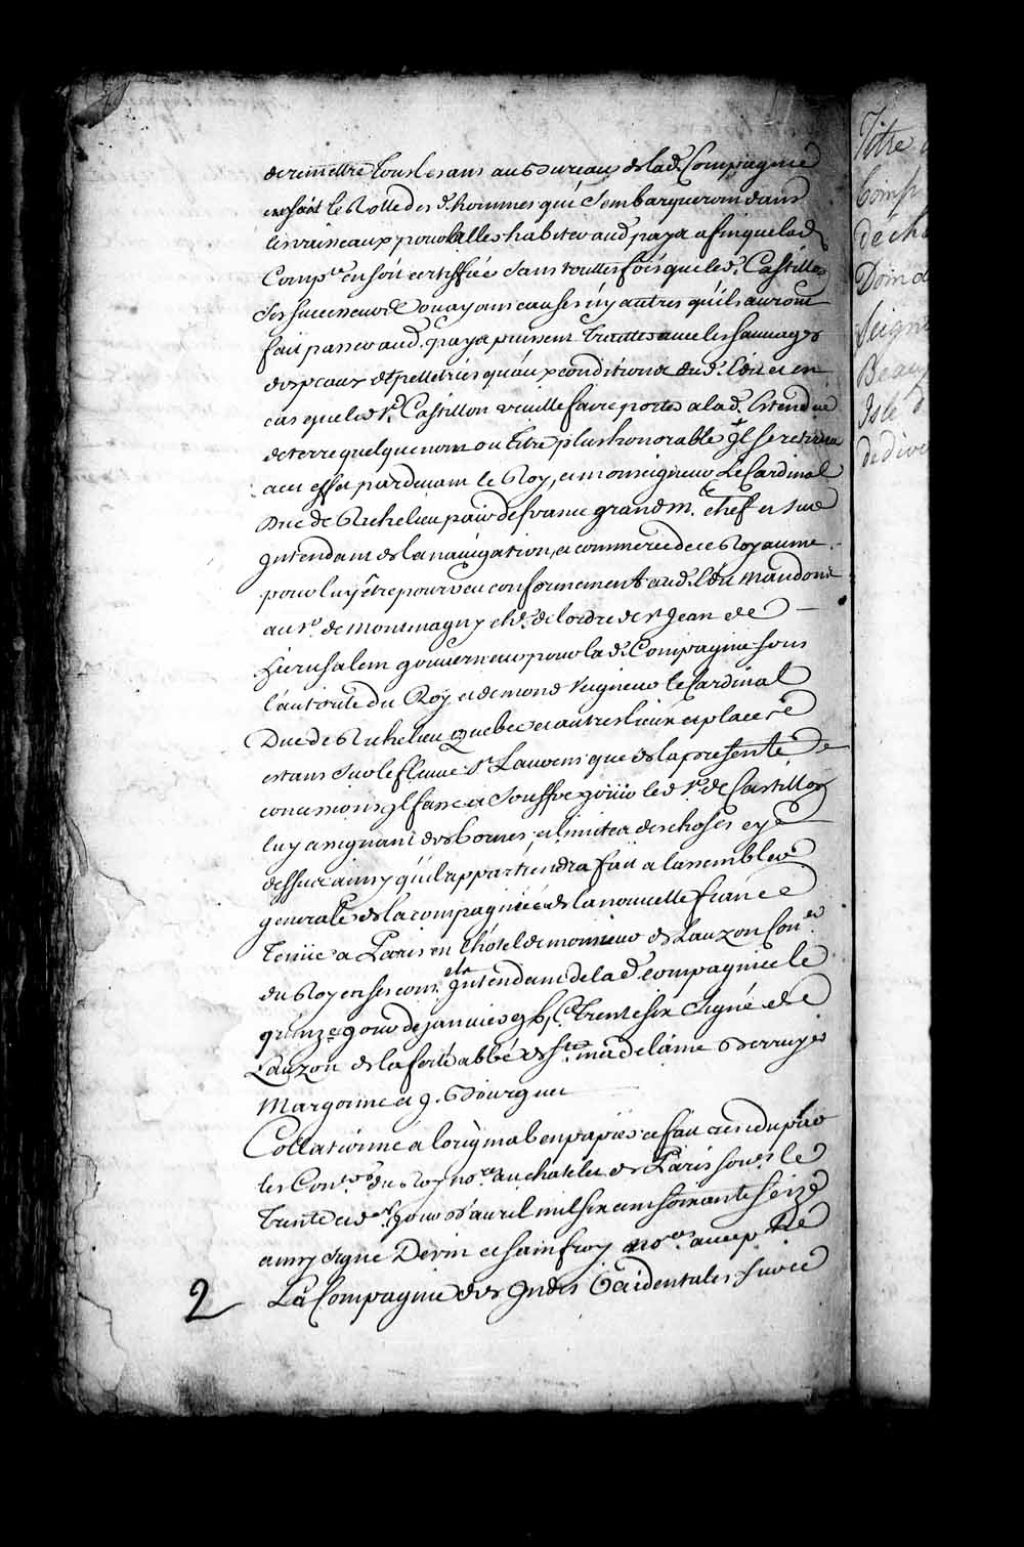 de remettre tous les ans au Bureau de lad. Compagnie
le Rolle des d. hommes qui s'embarqueront dans
les vaisseaux pour aller habiter aud. paya afin que lad.
Comp.e en soit certiffiée sans touttes fois que led. Castillon
ses successeurs ou ayans cause ny autres qu'ils auront
fait passer aud. paya puissent traitter avec les sauvages
des peaux et pelletries qu'aux conditions dud. Edit et en
cas que led. Sr. Castillon veuille faire porter a lad. Estendue
de terre quelque nom ou titre plus honorable Jl se retirera
a cet effet pardevant le Roy, et monseigneur Le Cardinal
Duc de Richelieu pair de france grand m.e chef et sur
Jntendant de la navigation, et commerce de ce Royaume
pour luy être pourveu conformement aud. Edit mandons
au sr. de montmagny ch.r de l'ordre de st Jean de
Hierusalem gouverneur pour la d. Compagnie sous
l'autorité du Roy et de monseigneur le Cardinal
Duc de Richelieu Quebec et autres lieux et places
estans sur le fleuve st. Laurens que de la presente
concession Jl fasse et souffre joüir led. Sr. de Castillon
luy assignant des bornes et limites des choses cy
dessus ainsy qu'il appartiendra fait a l'assemblée
generale de la compagnie de la nouvelle france
Tenüe a Paris en l'hotel de monsieur de Lauzon Con.er
du Roy en ses cons. Jntendant de la d. compagnie le
quinze jour de janvier trente six signé de
Lauzon de la ferté abbé de ste. madelaine Berruyer
Margonne et J. Bourguet
Collationné a l'original en papier ce fait rendu par
les Con.ers du Roy no.res au chatelet de Paris sous.s le
trente et jour d'avril mil six cens soixante seize
ainsy signé Devin et Sainfroy no.res
La Compagnie des Jndes Occidentales
2
Titre
Comp
Beau
Isle d
de dive